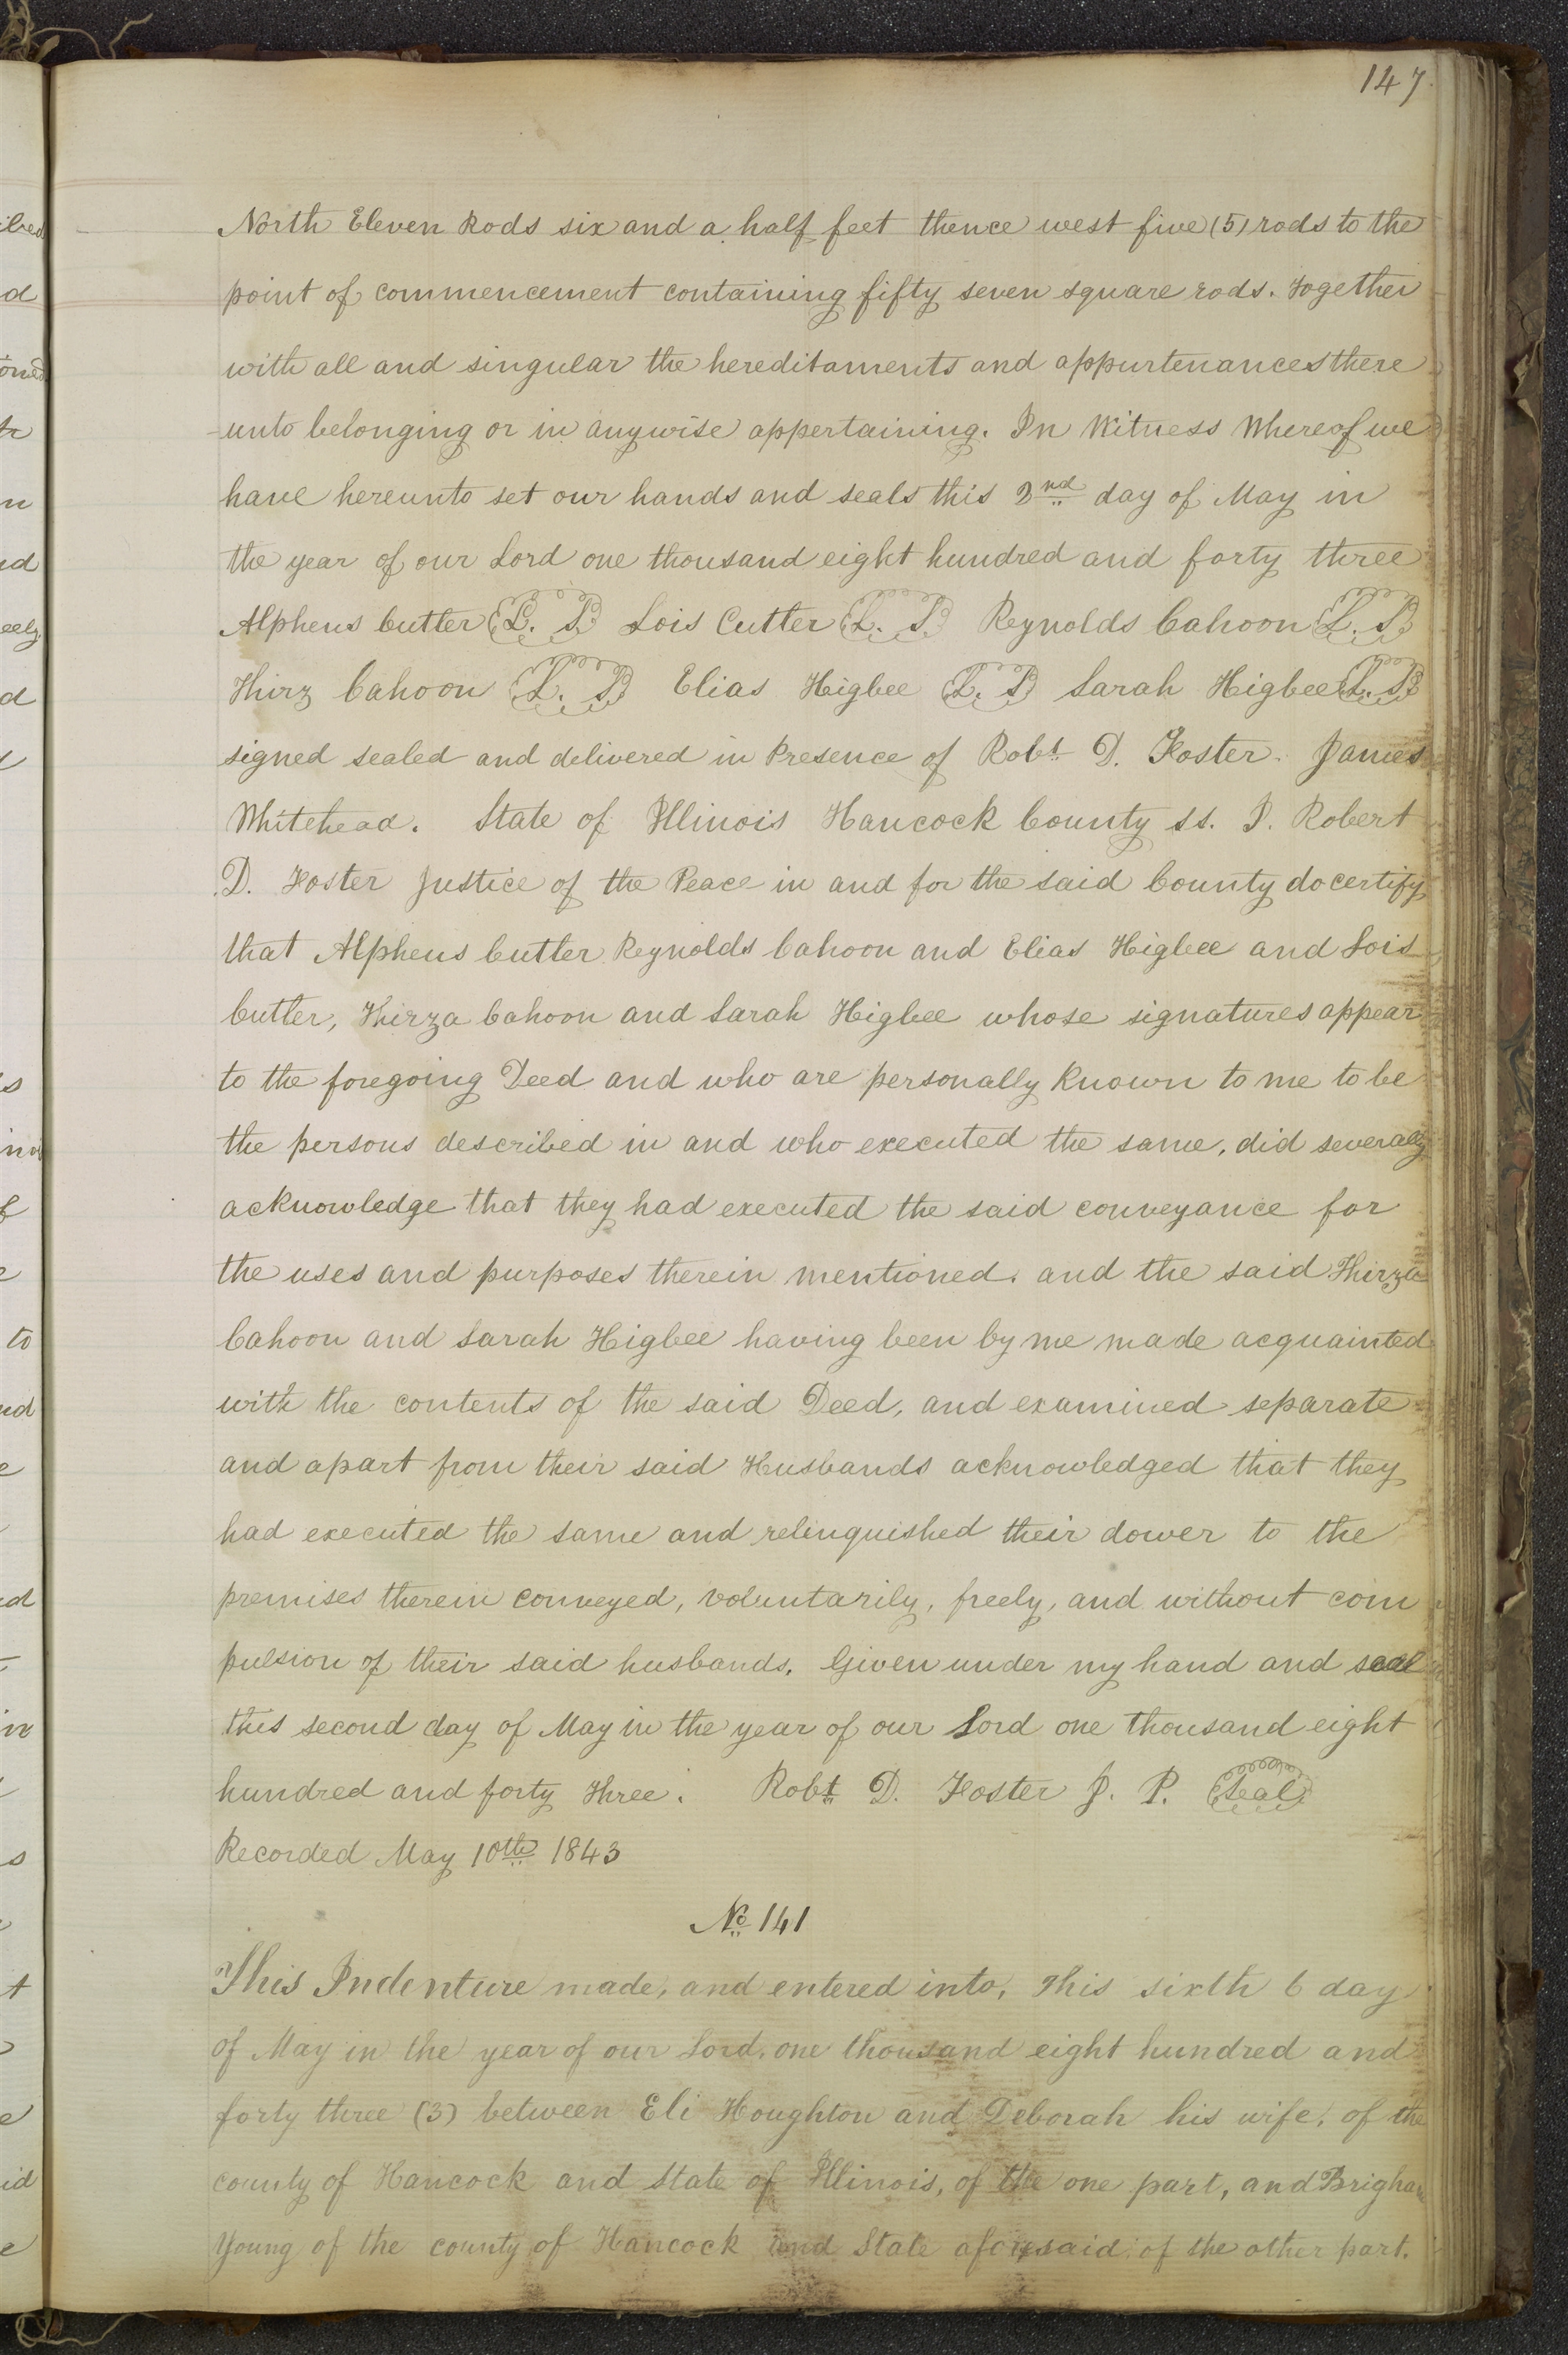 147
North Eleven Rods six and a half feet thence west five (5) rods to the
point of commencement containing fifty seven square rods. Together
with all and singular the hereditaments and appurtenances there
unto belonging or in anywise appertaining. In Witness Whereof we
have hereunto set our hands and seals this 2nd day of May in
the year of our Lord one thousand eight hundred and forty three
Alpheus Cutler L. S. Lois Cutler L. S. Reynolds Cahoon L. S.
Thirz Cahoon L. S. Elias Higbee L. S. Sarah Higbee L. S.
signed sealed and delivered in Presence of Robt D. Foster. James
Whitehead. State of Illinois Hancock County ss. I. Robert
D. Foster Justice of the Peace in and for the said County do certify
that Alpheus Cutler Reynolds Cahoon and Elias Higbee and Lois
Cutler, Thirza Cahoon and Sarah Higbee whose signatures appear
to the foregoing Deed and who are personally known to me to be
the persons described in and who executed the same, did severally
acknowledge that they had executed the said conveyance for
the uses and purposes therein mentioned. and the said Thirza
Cahoon and Sarah Higbee having been by me made acquainted
with the contents of the said Deed, and examined separate
and apart from their said Husbands acknowledged that they
had executed the same and relinquished their dower to the
premises therein conveyed, voluntarily, freely, and without com
pulsion of their said husbands. Given under my hand and seal
this second day of May in the year of our Lord one thousand eight
hundred and forty three. Robt D. Foster J. P. Seal
Recorded May 10th 1843
No 141
This Indenture made, and entered into, This sixth 6 day
of May in the year of our Lord. one thousand eight hundred and
forty three (3) between Eli Houghton and Deborah his wife, of the
county of Hancock and State of Illinois, of the one part, and Brigham
Young of the county of Hancock and State aforesaid of the other part.